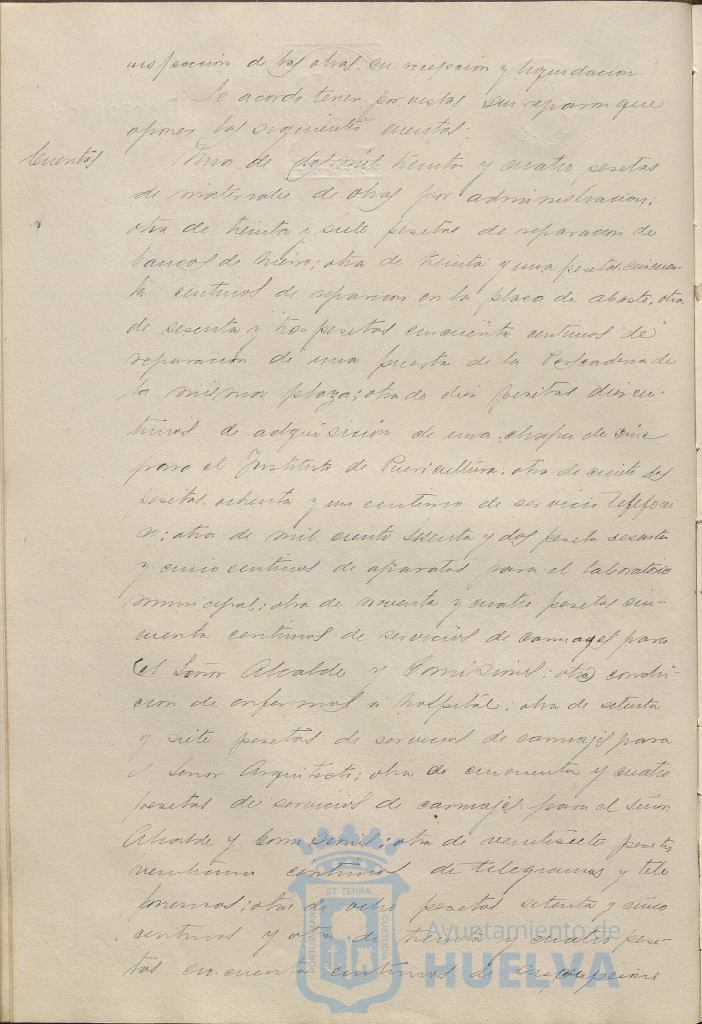 inspección de las obras, su recepcion y liquidacion.
Se acordó tener por vistas sin reparos que
oponer las siguientes cuentas:
Cuentas
Una de dos mil treinta y cuatro pesetas
de materiales de obras por administracion;
otra de treinta y siete pesetas de reparación de
bancos de hierro; otra de treinta y una pesetas cincuen-
ta centimos de reparación en la plaza de abastos; otra
de sesenta y tres pesetas cincuenta centimos de
reparacion de una puerta de la Pescaderia de
la misma plaza; otra de diez pesetas diez cen-
timos de adquisición de una chapa de cinc
para el Instituto de Puericultura; otra de ciento dos
pesetas ochenta y un centimo de servicio telefoni
co; otra de mil ciento sesenta y dos peseta sesenta
y cinco centimos de aparatos para el laboratorio
municipal; otra de noventa y cuatro pesetas cin-
cuenta centimos de servicios de carruages para
el Señor Alcalde y Comisiones; otra conduc-
cion de enfermos a hospital; otra de setenta
y siete pesetas de servicios de carruajes para
el Señor Arquitecto; otra de cincuenta y cuatro
pesetas de servicios de carruajes para el Señor
Alcalde y Comisiones; otra de veintisiete pesetas
veintiun centimos de telegramas y tele
fonemas; otra de ocho pesetas setenta y cinco
centimos y otra de treinta y cuatro pese-
tas cincuenta centimos de suscripciones
PORTUS MARIS ET TERRAE CUSTODIA
Ayuntamiento de
HUELVA